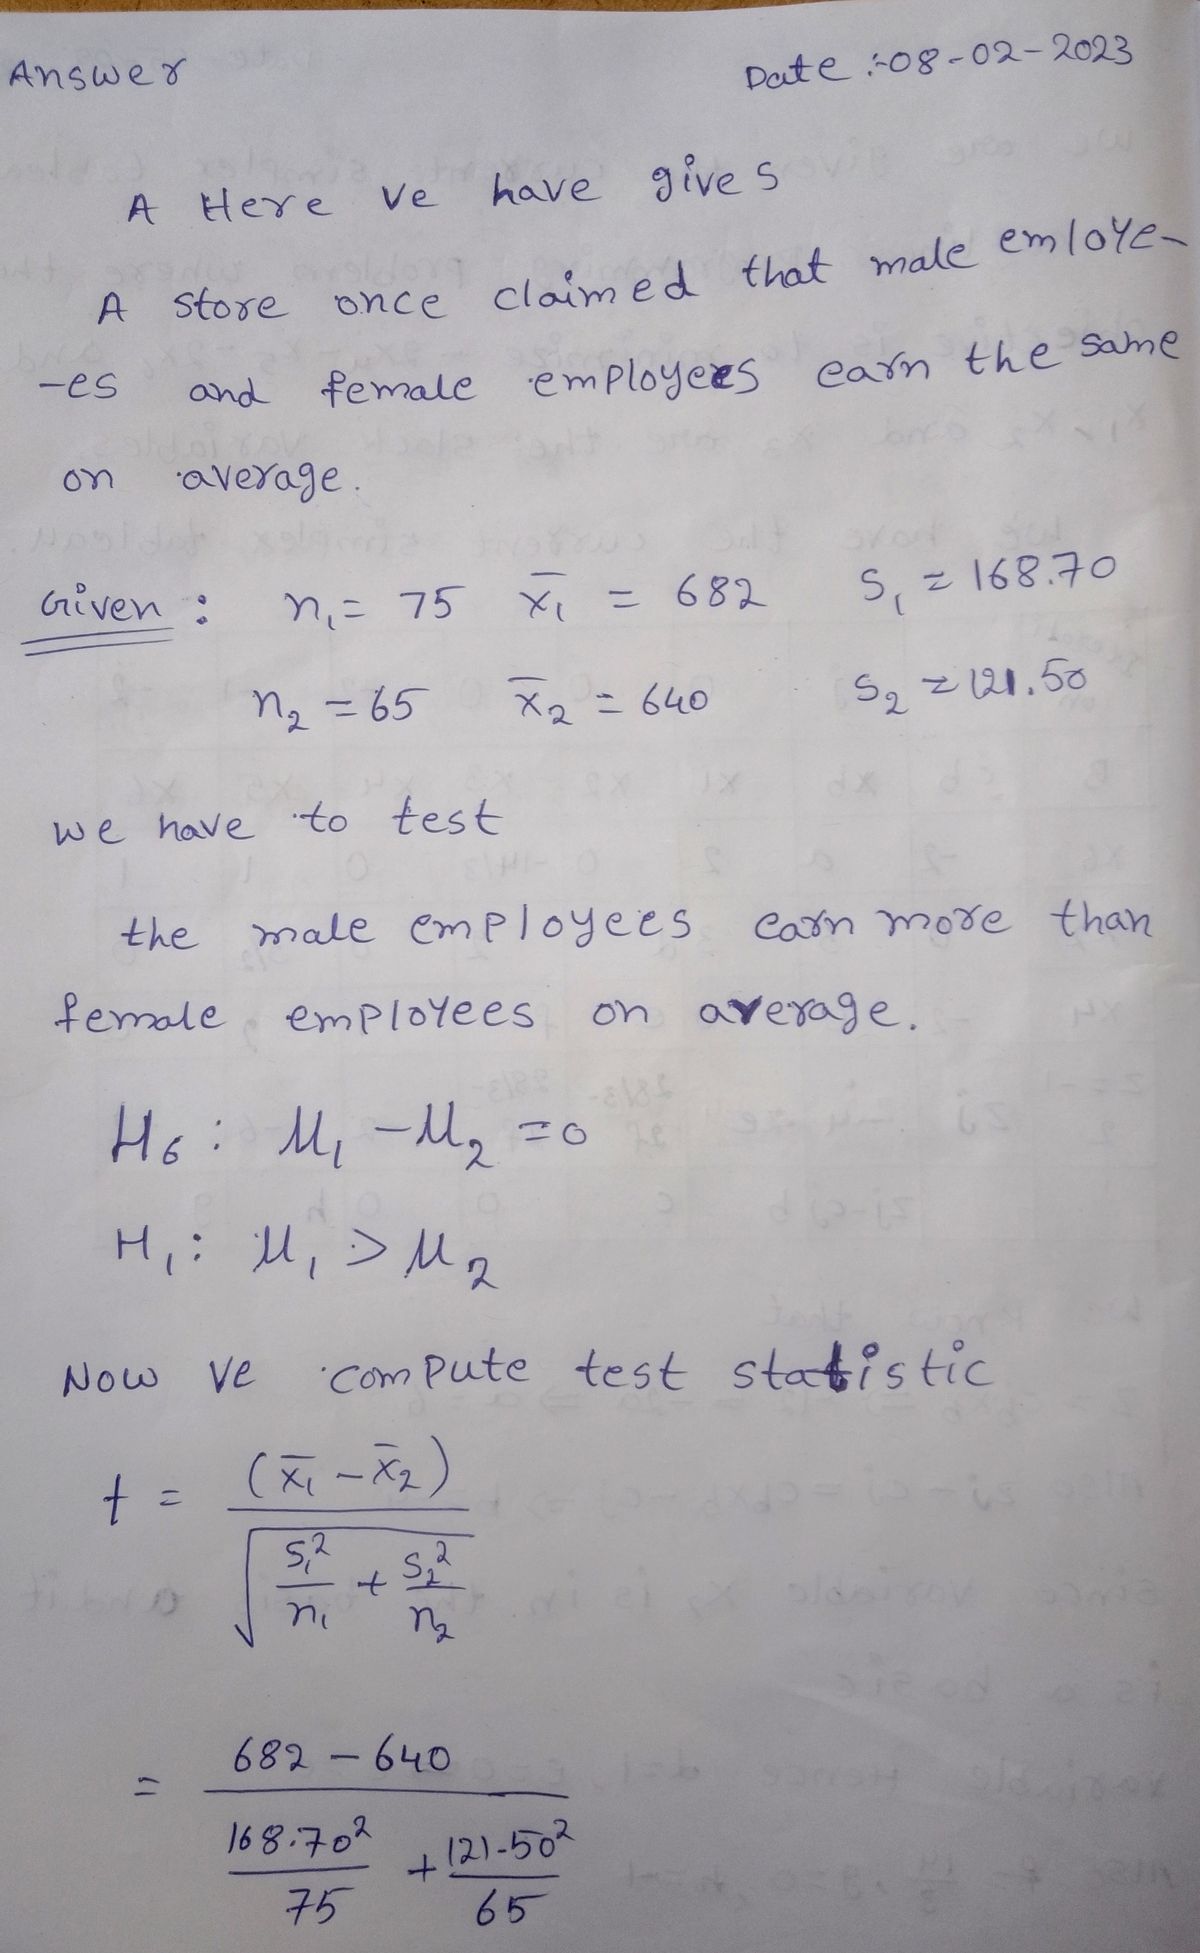 Answer Date :-08-02-2023
A Here ve have gives
A store once claimed that male emloye-
-es and female employees earn the same
on average.
Given : n₁ = 75 x̄₁ = 682 S₁ = 168.70
n₂ = 65 x̄₂ = 640 S₂ = 121.50
we have to test
the male employees earn more than
female employees on average.
H₀ : μ₁ - μ₂ = 0
H₁ : μ₁ > μ₂
Now ve compute test statistic
t = (x̄₁ - x̄₂)
√ S₁²/n₁ + S₂²/n₂
= 682 - 640
168.70²/75 + 121.50²/65